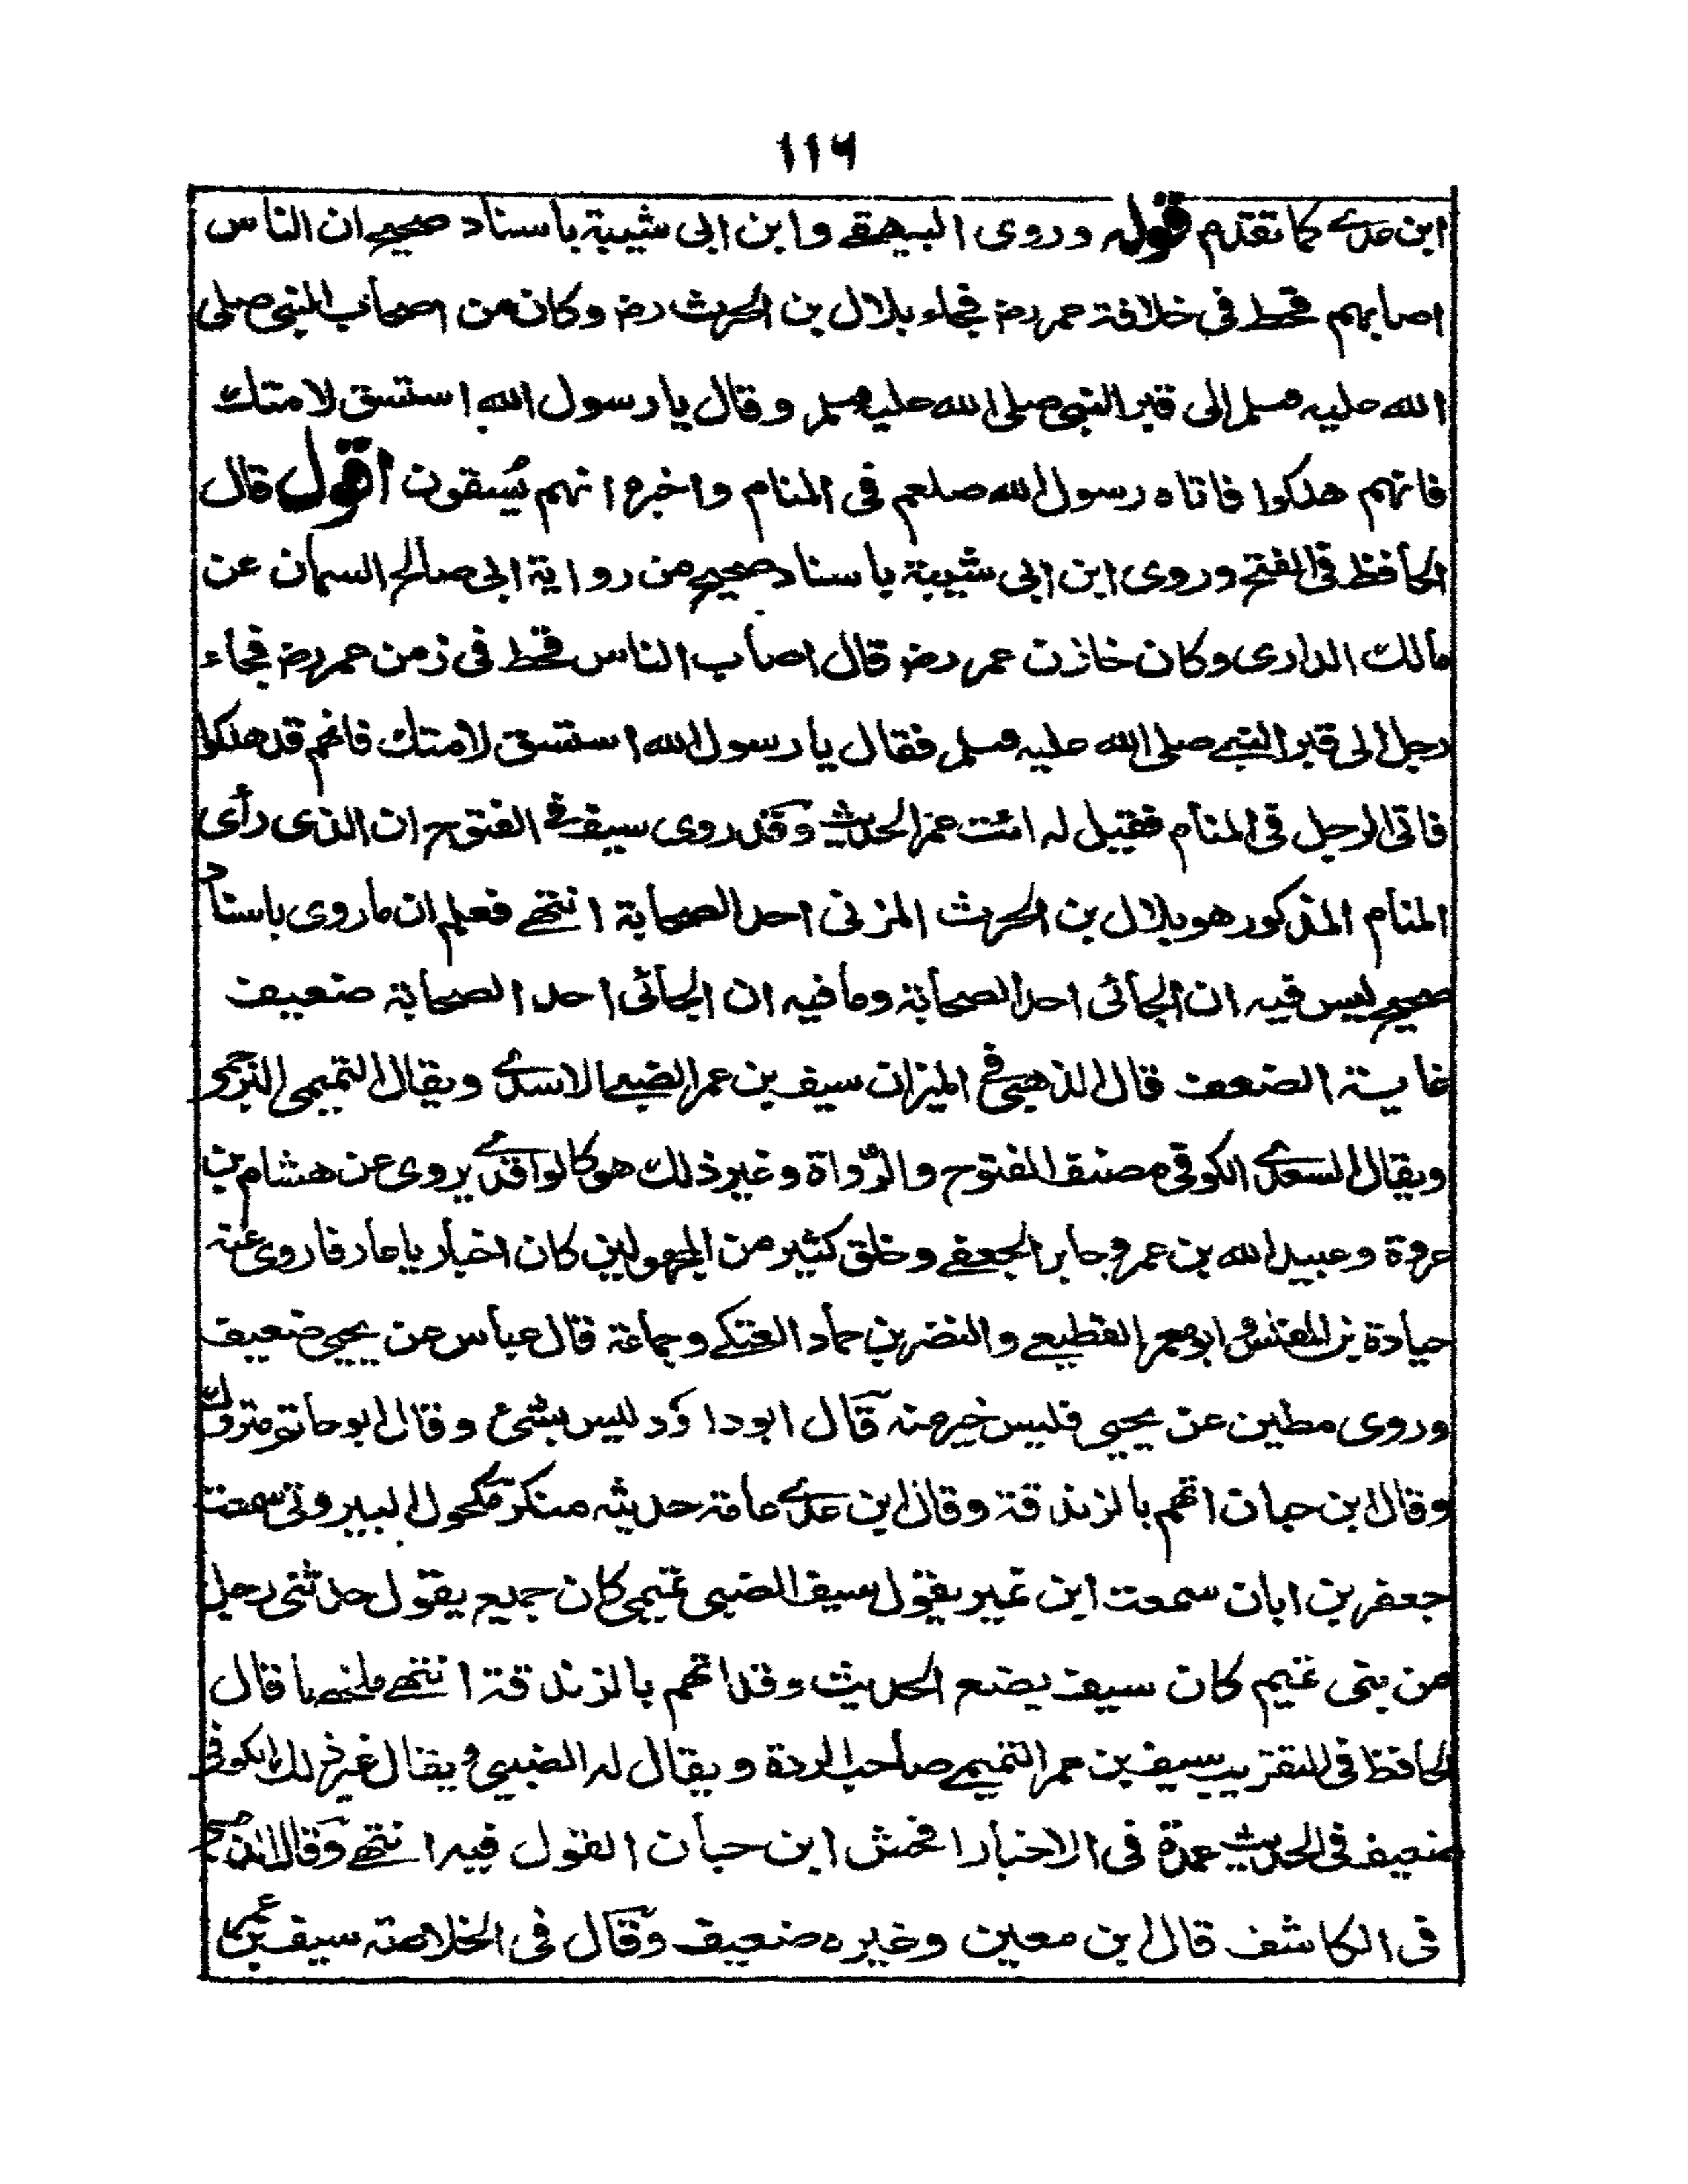 ١١٦
ابن عدي كما تقدم قوله وروى البيهقي وابن ابى شيبة باسناد صحيح ان الناس
اصابهم قحط فى خلافة عمر رض فجاء بلال بن الحرث رض وكان من اصحاب النبى صلى
الله عليه وسلم الى قبر النبى صلى الله عليه وسلم وقال يا رسول الله استسق لامتك
فانهم هلكوا فاتاه رسول الله صلعم فى المنام واخبره انهم يُسقون اقول قال
الحافظ فى الفتح وروى ابن ابى شيبة باسناد صحيح من رواية ابى صالح السمان عن
مالك الدارى وكان خازن عمر رض قال اصاب الناس قحط فى زمن عمر رض فجاء
رجل الى قبر النبي صلى الله عليه وسلم فقال يا رسول الله استسق لامتك فانهم قد هلكوا
فاتى الرجل فى المنام فقيل له ائت عمر الحديث وقد روى سيف في الفتوح ان الذى رأى
المنام المذكور هو بلال بن الحرث المزنى احد الصحابة انتهى فعلم ان ما روى باسناد
صحيح ليس فيه ان الجائى احد الصحابة وما فيه ان الجائى احد الصحابة ضعيف
غاية الضعف قال الذهبي في الميزان سيف بن عمر الضبي الاسدي ويقال التميمى البرجمي
ويقال السعدي الكوفى مصنف الفتوح والرُّواة وغير ذلك هو كالواقدي يروى عن هشام بن
عروة وعبيد الله بن عمر وجابر الجعفي وخلق كثير من المجهولين كان اخباريا عارفا روى عنه
جبادة بن المغلس وابو معمر القطيعي والنضر بن حماد العتكي وجماعة قال عباس عن يحيى ضعيف
وروى مطين عن يحيى فليس خير منه قال ابو داؤد ليس بشئ وقال ابو حاتم متروك
وقال ابن حبان اتهم بالزندقة وقال ابن عدي عامة حديثه منكر مكحول البيروتى سمعت
جعفر بن ابان سمعت ابن نمير يقول سيف الضبى تميمى كان جميع يقول حدثنى رجل
من بنى تميم كان سيف يضع الحديث وقد اتهم بالزندقة انتهى ملخصا قال
الحافظ فى التقريب سيف بن عمر التميمي صاحب الردة ويقال له الضبى ويقال غير ذلك الكوفى
ضعيف فى الحديث عمدة فى الاخبار افحش ابن حبان القول فيه انتهى وقال الذهبي
فى الكاشف قال ابن معين وغيره ضعيف وقال فى الخلاصة سيف بن عمر